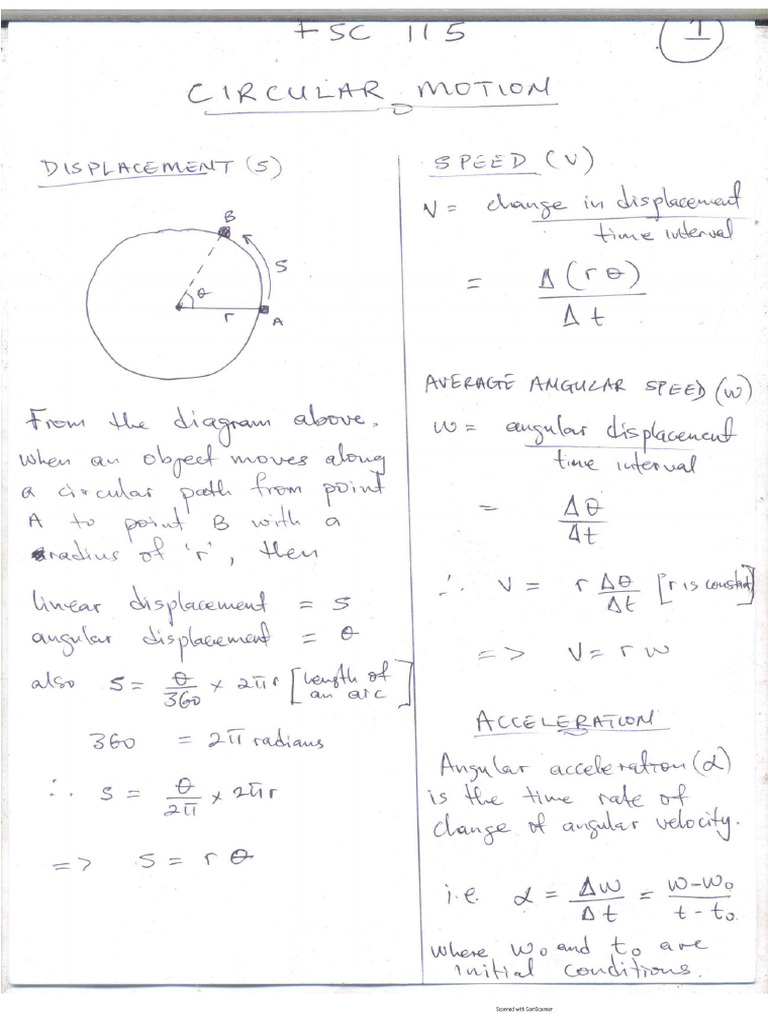 FSC 115
1
CIRCULAR MOTION
DISPLACEMENT (S)
B
S
θ
r
A
From the diagram above.
when an object moves along
a circular path from point
A to point B with a
radius of 'r', then
linear displacement = S
angular displacement = θ
also S = θ/360 × 2πr [length of an arc]
360 = 2π radians
∴ S = θ/2π × 2πr
=> S = rθ
SPEED (V)
V = change in displacement / time interval
= Δ(rθ) / Δt
AVERAGE ANGULAR SPEED (W)
W = angular displacement / time interval
= Δθ / Δt
∴ V = r Δθ/Δt [r is constant]
=> V = rw
ACCELERATION
Angular acceleration (α)
is the time rate of
change of angular velocity.
i.e. α = Δw/Δt = w-w₀/t-t₀
where w₀ and t₀ are
initial conditions.
Scanned with CamScanner